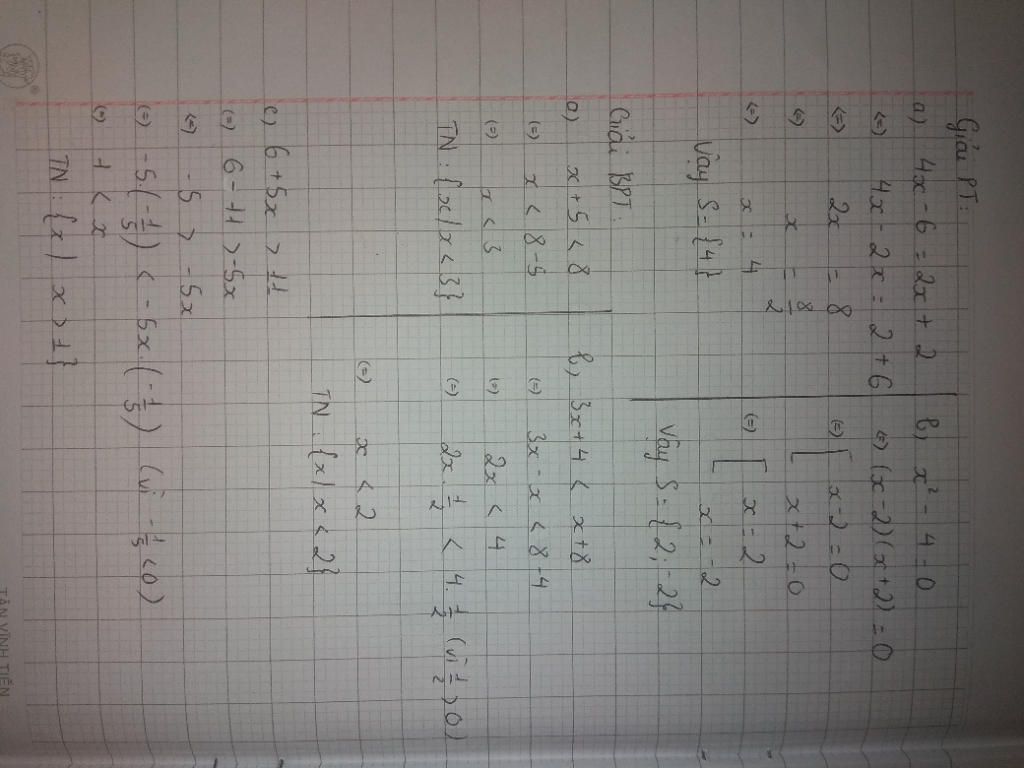 Giải PT:
a) 4x - 6 = 2x + 2
(=) 4x - 2x = 2 + 6
(=) 2x = 8
(=) x = 8/2
(=) x = 4
Vậy S = {4}
b, x² - 4 = 0
(=) (x - 2)(x + 2) = 0
(=) [ x - 2 = 0
x + 2 = 0
(=) [ x = 2
x = -2
Vậy S = {2; -2}
Giải BPT:
a) x + 5 < 8
(=) x < 8 - 5
(=) x < 3
TN: {x | x < 3}
b, 3x + 4 < x + 8
(=) 3x - x < 8 - 4
(=) 2x < 4
(=) 2x . 1/2 < 4 . 1/2 (vì 1/2 > 0)
(=) x < 2
TN: {x | x < 2}
c) 6 + 5x > 11
(=) 6 - 11 > -5x
(=) -5 > -5x
(=) -5(-1/5) < -5x . (-1/5) (vì -1/5 < 0)
(=) 1 < x
TN: {x | x > 1}
TÂN VĨNH TIẾN